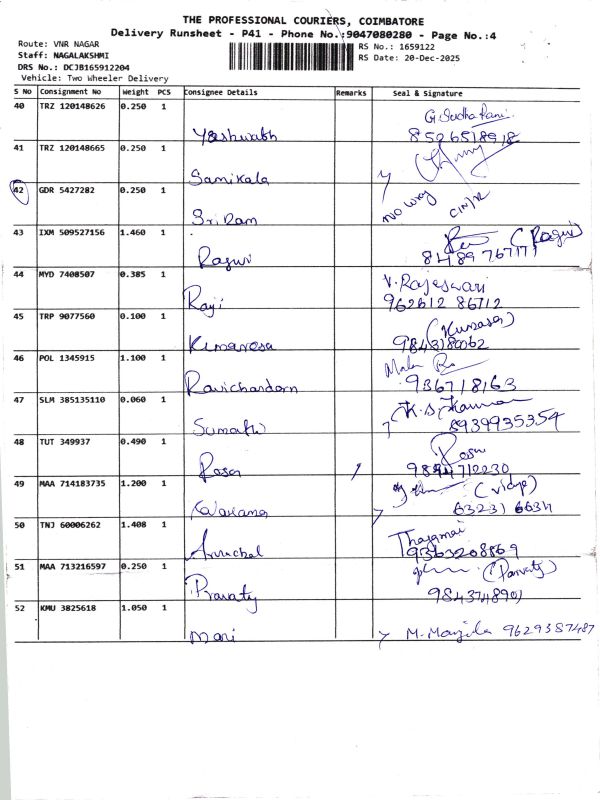 THE PROFESSIONAL COURIERS, COIMBATORE
Delivery Runsheet - P41 - Phone No.:9047080280 - Page No.:4
Route: VNR NAGAR
Staff: NAGALAKSHMI
DRS No.: DCJB165912204
Vehicle: Two Wheeler Delivery
RS No.: 1659122
RS Date: 20-Dec-2025
S No Consignment No Weight PCS Consignee Details Remarks Seal & Signature
40 TRZ 120148626 0.250 1 G. Sudha Rani
Yashwabh 8526518918
41 TRZ 120148665 0.250 1
Samikala
42 GDR 5427282 0.250 1 No way
Sriram
43 IXM 509527156 1.460 1 (Ragui)
Ragui 8489767171
44 MYD 7408507 0.385 1 V. Rajeswari
Raji 962612 86712
45 TRP 9077560 0.100 1 (Kumaresa)
Kumaresa
46 POL 1345915 1.100 1
Ravichardorn 936718163
47 SLM 385135110 0.060 1 K. S. Kannan
Sumathi 8939935354
48 TUT 349937 0.490 1 Rosu
Rosa
49 MAA 714183735 1.200 1 (Vidya)
50 TNJ 60006262 1.408 1
Arruchal 9363208869
51 MAA 713216597 0.250 1 (Parvaty)
Pravaty 9843748901
52 KMU 3825618 1.050 1
Mari M. Manjula 9629387487